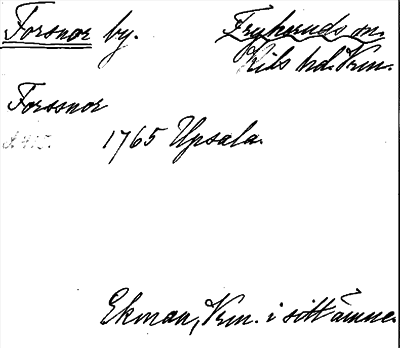 Forsnor by. Fryksände sn.
Kils hd. Vrm.
Forssnor
1765 Upsala.
Ekman, Vrm. i sitt ämne.